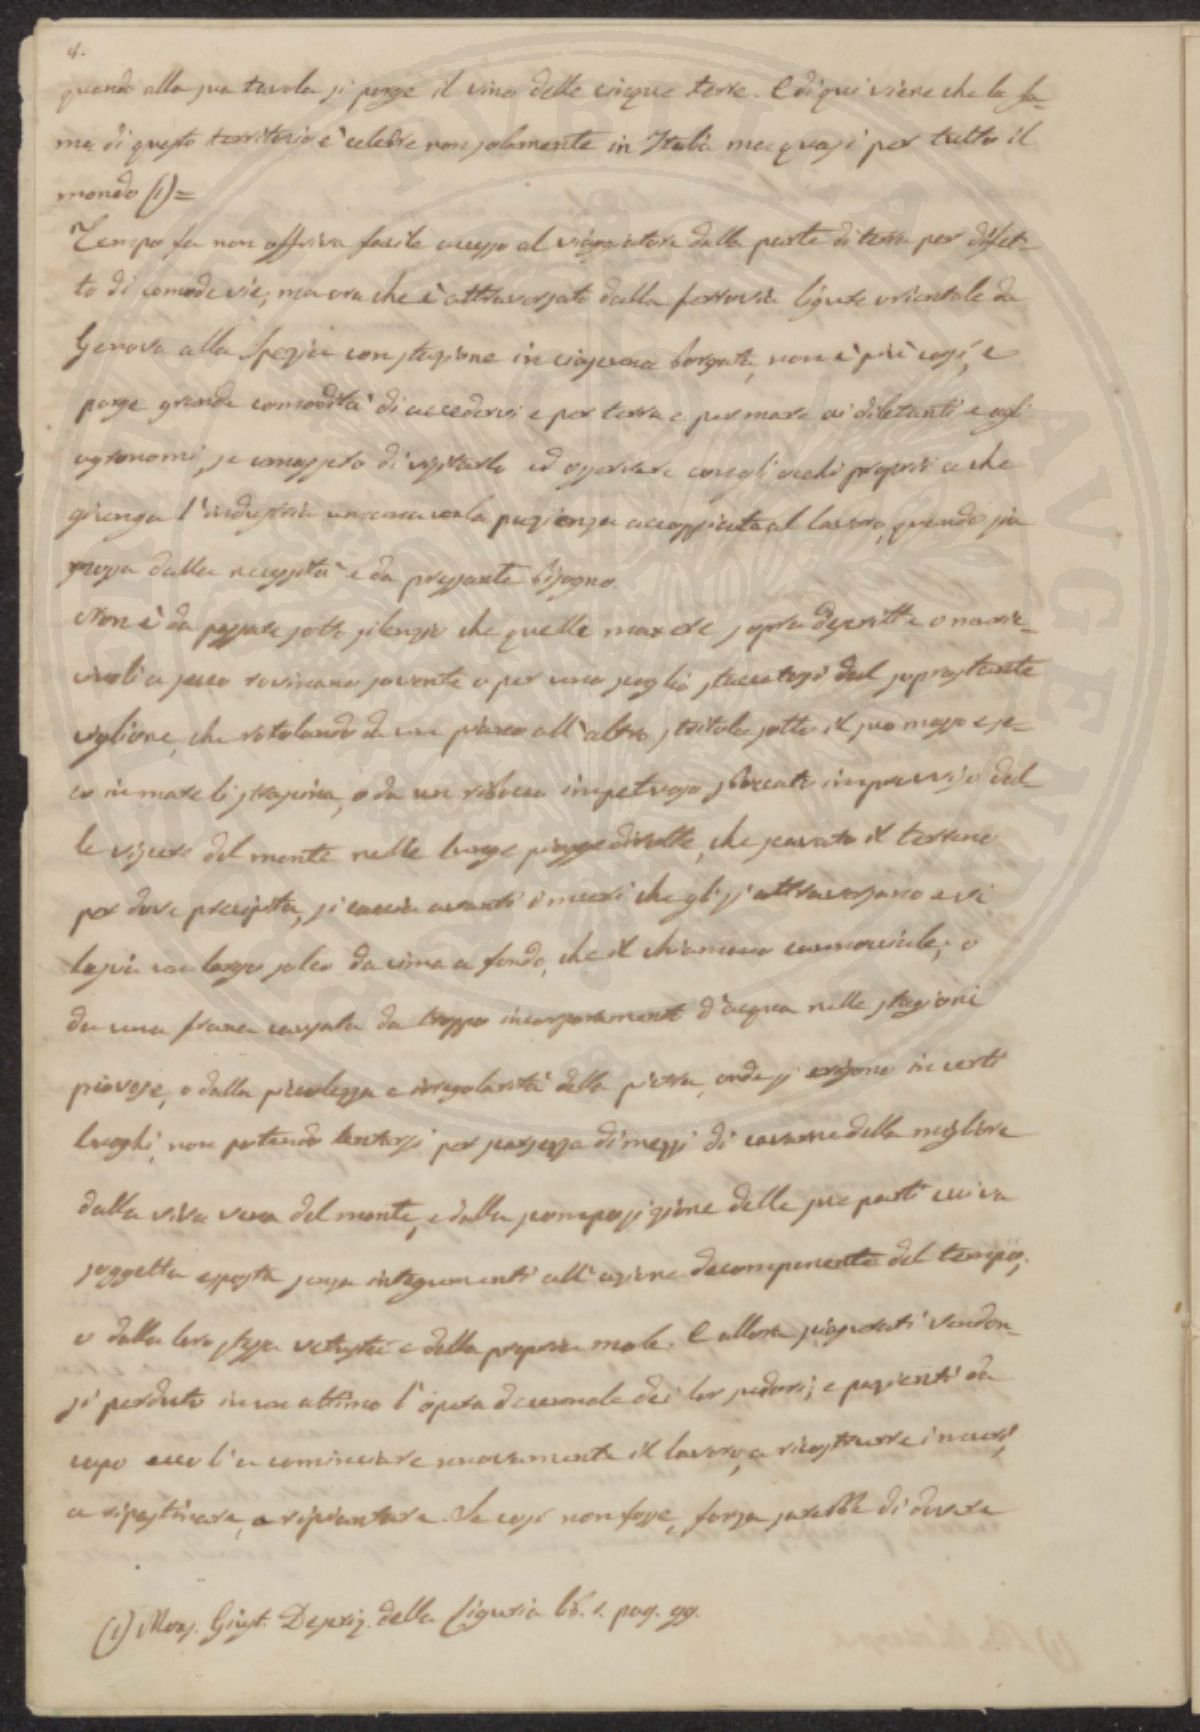 4.
quando alla sua tavola si porge il vino delle cinque terre. E di qui viene che la fa=
ma di questo territorio è celebre non solamente in Italia ma quasi per tutto il
mondo (1)=
Tempo fa non offriva facile accesso al viaggiatore dalla parte di terra per difet=
to di comode vie; ma ora che è attraversato dalla ferrovia ligure orientale da
Genova alla Spezia con stazione in ciascuna borgata, non è più così, e
porge grande comodità di accedervi e per terra e per mare ai diletanti e agli
agronomi, se amassero di visitarlo ed osservare cogli occhi proprii a che
giunga l'industria umana e la pazienza accoppiata al lavoro, quando sia
mossa dalla necessità e da pressante bisogno.
Non è da passare sotto silenzio che quelle macerie sopra descritte o
a secco rovinano sovente o per uno scoglio staccatosi dal soprastante
ciglione, che rotolando da un piano all'altro stritola sotto il suo masso e se=
co in mare li strascina, o da un ribocco impetuoso sboccato improvviso dal=
le viscere del monte nelle lunghe piogge dirotte, che scavato il terreno
per dove precipita, si caccia avanti i muri che gli si attraversano e vi
lascia un largo solco da cima a fondo, che il chiamano; o
da una frana causata da troppo incorporamento d'acqua nelle stagioni
piovose, o dalla piccolezza e irregolarità della pietra, onde si erigono in certi
luoghi, non potendo tentarsi per scarsezza di mezzi di cavarne della migliore
dalla viva vena del monte, e dalla scomposizione delle sue parti cui va
soggetta esposta senza integumenti all'azione decomponente del tempo;
o dalla loro stessa vetustà e dalla propria mole. E allora vendon=
si perduto in un attimo l'opera decennale dei lor sudori; e pazienti da
capo eccoli a cominciare nuovamente il lavoro, a ricostrurre i muri,
a ripastinare, a ripiantare. Se così non fosse, forza sarebbe di dovere
(1) Mons. Giust. Descriz. della Liguria lib. 1. pag. 99.